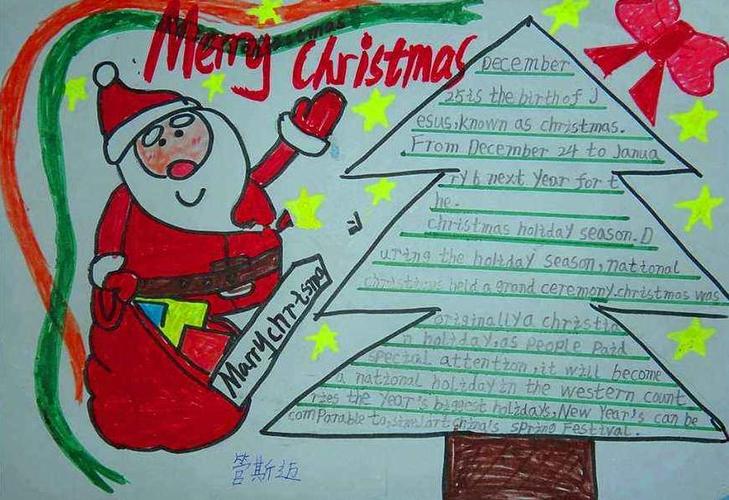 Merry Christmas
December
25 is the birth of J
esus, known as christmas.
From December 24 to Janua
ry 6 next year for t
he.
christmas holiday season. D
uring the holiday season, national
christians held a grand ceremony. christmas was
originally a christia
n holiday, as people paid
special attention, it will become
a national holiday in the western count
ries the year's biggest holidays, New Year's can be
comparable to, similart china's spring Festival.
Marry chrismas
营斯迈